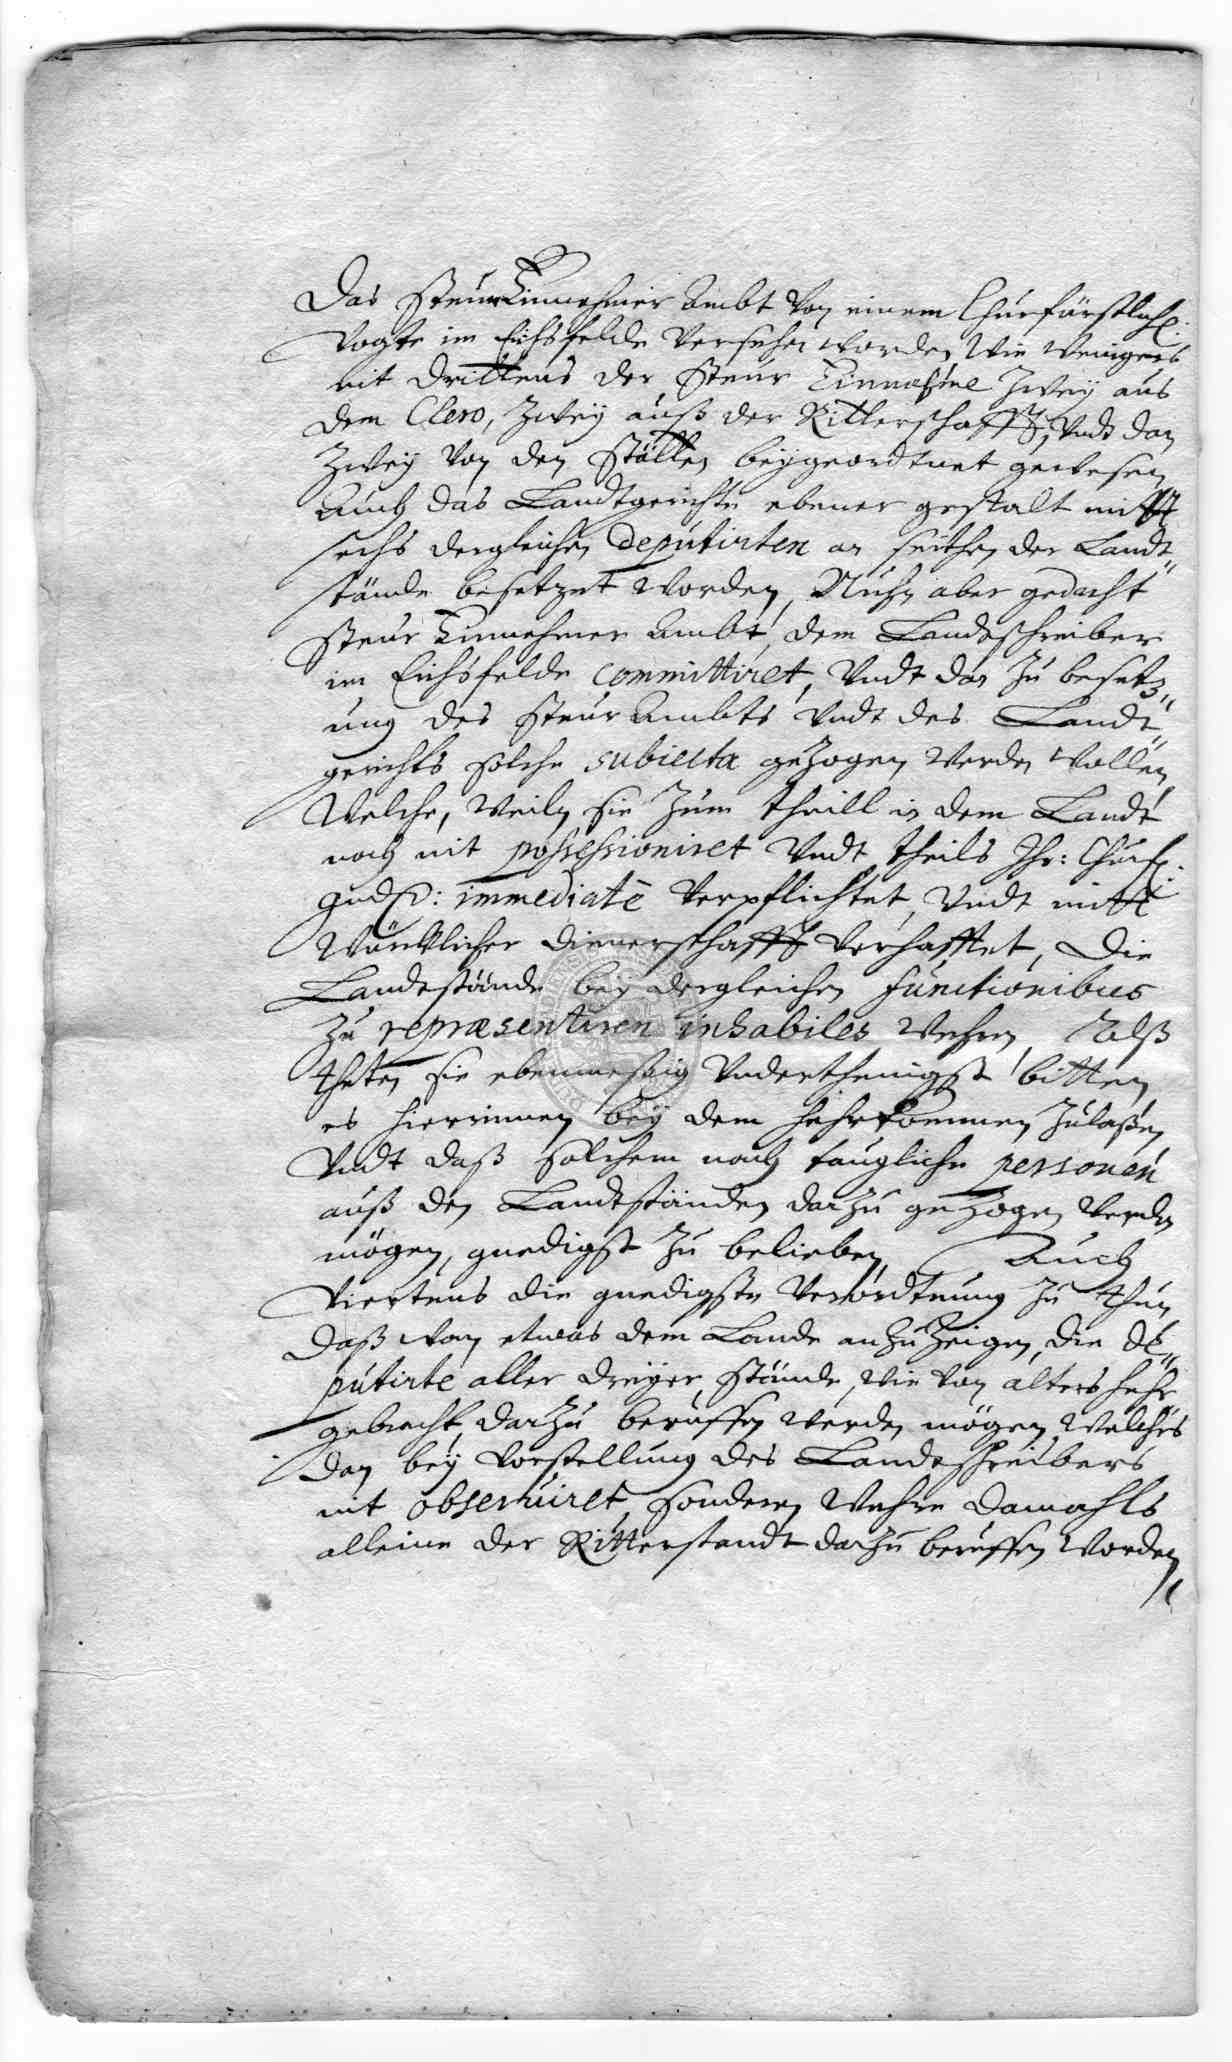 Das SteurEinnehmer Ambt von einem Churfürstlich.
Vogte im Eichsfelde versehen worden, Wie wenigers
nit drittens der Steur Einnahme zwey aus
dem Clero, zwey auß der Ritterschafft, Vndt dan
zwey von den Stätten beygeordtnet gewesen
Auch das Landtgerichte ebener gestalt mitt
sechs dergleichen deputirten an seithen der Landt„
stände besetzet worden, Nuhn aber gedacht
Steur Einnehmer Ambt, dem Landschreiber
im Eichsfelde committiret, Vndt dan zu besetz„
ung des Steur Ambts Vndt des Landt„
gerichts solche subiecta gezogen werden wollen,
Welche, weiln sie zum theill in dem Landt
noch nit possessioniret Vndt theils Ihr: Churf.
gnd.: immediatè verpflichtet, Vndt mitt
würcklicher dienerschafft verhafftet, die
Landtstände bey dergleichen functionibus
zu repræsentiren inhabiles wehren, Alß
theten sie ebenmeßig Vnderthenigst bitten
es hierinnen bey dem hehrkommen zulaßen,
Vndt daß solchem nach taugliche personen
auß den Landtständen darzu gezogen werden
mögen, gnedigst zu belieben, Auch
Viertens die gnedigste Verordtnung zu thun,
daß wan etwas dem Lande anzuzeigen, die de„
putirte aller dreyer Stände, wie von alters hehr
gebracht, darzu beruffen werden mögen, Welches
dan bey vorstellung des Landschreibers
nit obseruiret, sonderen wehre damahls
alleine der Ritterstandt darzu beruffen worden,